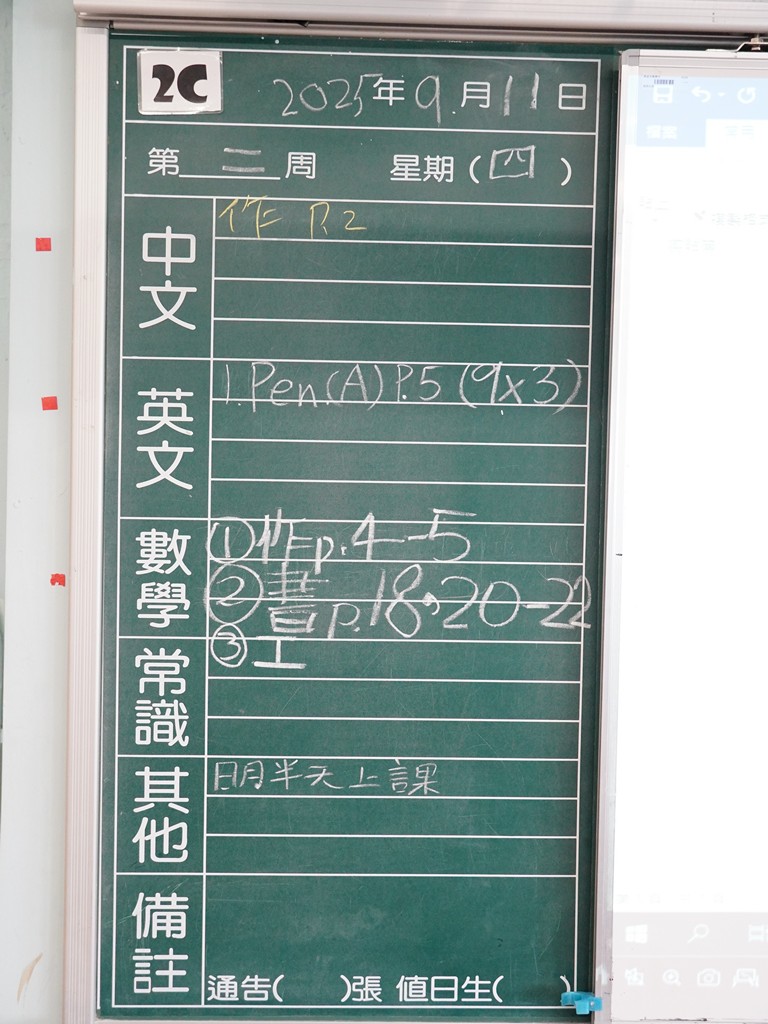 2C
2025年9月11日
第二周 星期(四)
中文
作 P.2
英文
1. Pen.(A) P.5 (9x3)
數學
①作p.4-5
②書p.18、20-22
③工
常識
其他
明半天上課
備註
通告( )張 值日生( )